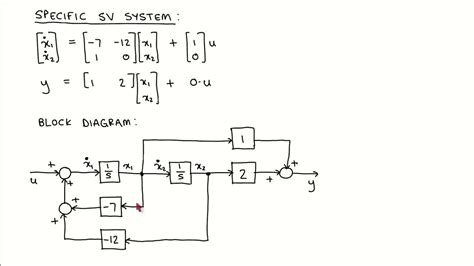 SPECIFIC SV SYSTEM:
[ẋ₁ ẋ₂] = [-7 -12 1 0][x₁ x₂] + [1 0]u
y = [1 2][x₁ x₂] + 0·u
BLOCK DIAGRAM:
1
u + + ẋ₁ 1/s x₁ ẋ₂ 1/s x₂ 2 + + y
+ -7
+ -12